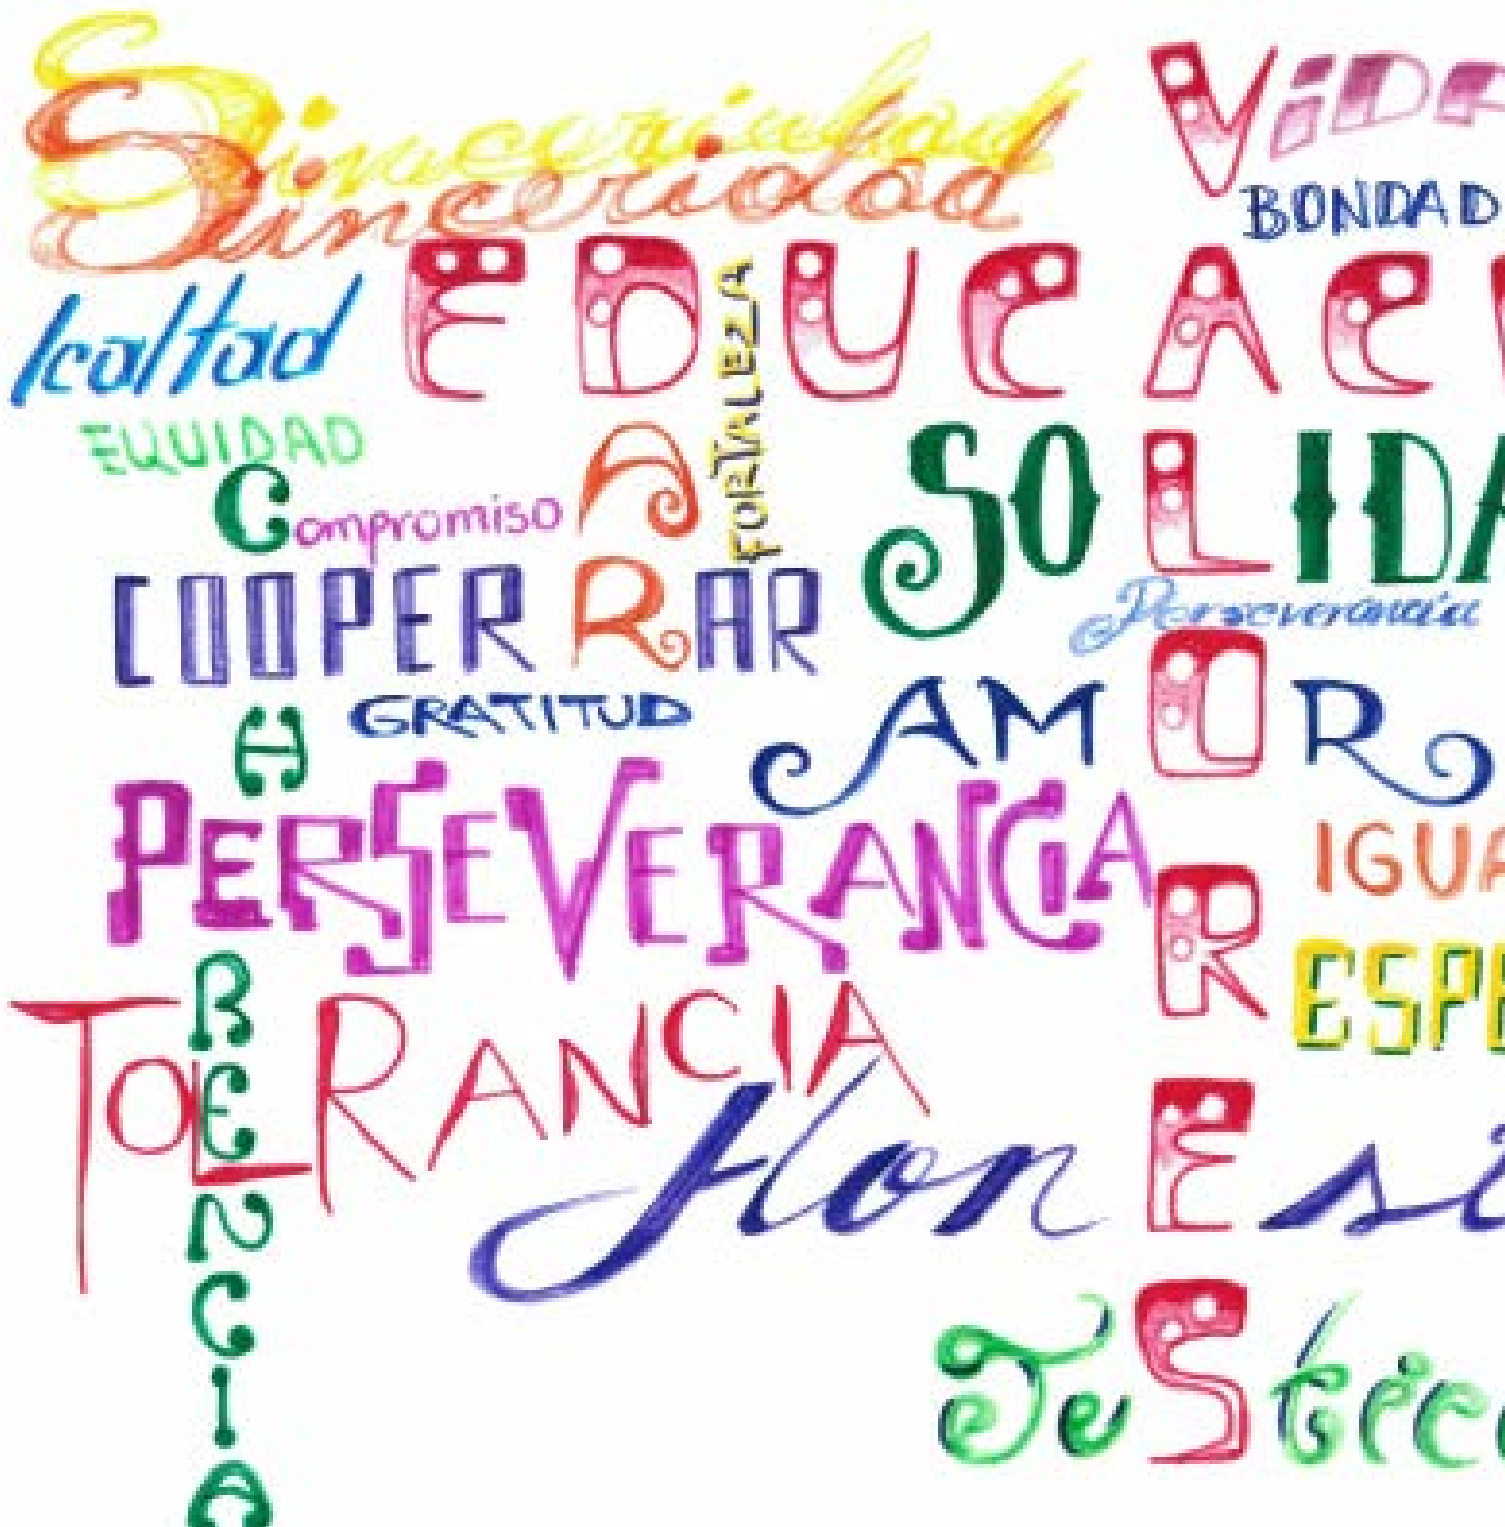 Sinceridad
Sinceridad
ViDA
BONDAD
lealtad
EDUCACI
FORTALEZA
EQUIDAD
Compromiso
A
SOLIDA
COOPERRAR
Perseverancia
GRATITUD
AMOR
H
PERSEVERANCIA
IGUA
R
ESPE
TOLERANCIA
HonEs
N
C
JuSti
I
A